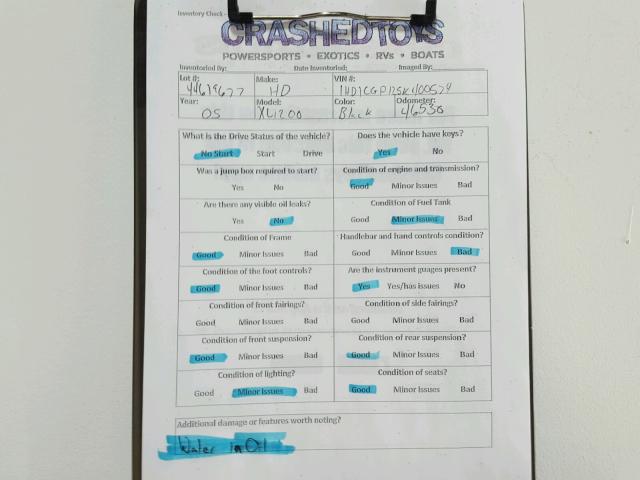 Inventory Check
CRASHEDTOYS
POWERSPORTS • EXOTICS • RVs • BOATS
Inventoried By: Date Inventoried: Imaged By:
Lot #: Make: VIN #:
44619677 HD
Year: Model: Color: Odometer:
05 XL1200 Black 46538
What is the Drive Status of the vehicle? Does the vehicle have keys?
No Start Start Drive Yes No
Was a jump box required to start? Condition of engine and transmission?
Yes No Good Minor Issues Bad
Are there any visible oil leaks? Condition of Fuel Tank
Yes No Good Minor Issues Bad
Condition of Frame Handlebar and hand controls condition?
Good Minor Issues Bad Good Minor Issues Bad
Condition of the foot controls? Are the instrument guages present?
Good Minor Issues Bad Yes Yes/has issues No
Condition of front fairings? Condition of side fairings?
Good Minor Issues Bad Good Minor Issues Bad
Condition of front suspension? Condition of rear suspension?
Good Minor Issues Bad Good Minor Issues Bad
Condition of lighting? Condition of seats?
Good Minor Issues Bad Good Minor Issues Bad
Additional damage or features worth noting?
Water in Oil